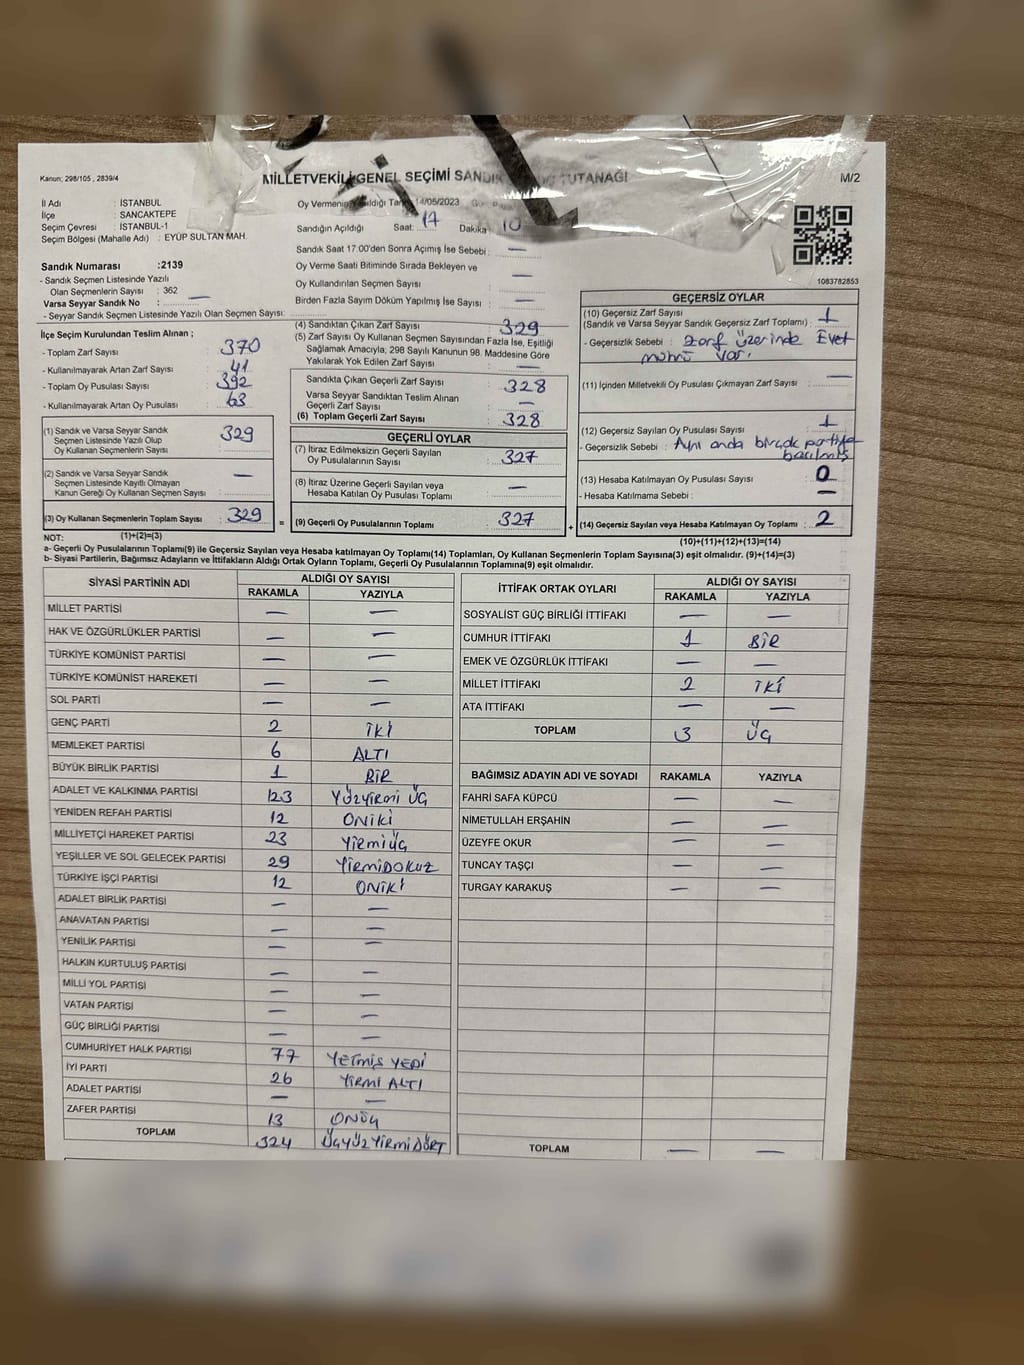 Kanun; 298/105 , 2839/4
MİLLETVEKİLİ GENEL SEÇİMİ SANDIK TUTANAĞI
M/2
İl Adı : İSTANBUL
İlçe : SANCAKTEPE
Seçim Çevresi : İSTANBUL-1
Seçim Bölgesi (Mahalle Adı) : EYÜP SULTAN MAH.
Sandık Numarası :2139
- Sandık Seçmen Listesinde Yazılı
Olan Seçmenlerin Sayısı : 362
Varsa Seyyar Sandık No : —
- Seyyar Sandık Seçmen Listesinde Yazılı Olan Seçmen Sayısı:
Oy Vermenin Yapıldığı Tarih 14/05/2023
Sandığın Açıldığı Saat: 17 Dakika 10
Sandık Saat 17:00'den Sonra Açımış İse Sebebi : —
Oy Verme Saati Bitiminde Sırada Bekleyen ve
Oy Kullandırılan Seçmen Sayısı : —
Birden Fazla Sayım Döküm Yapılmış İse Sayısı : —
1083782853
İlçe Seçim Kurulundan Teslim Alınan ;
- Toplam Zarf Sayısı : 370
- Kullanılmayarak Artan Zarf Sayısı : 41
- Toplam Oy Pusulası Sayısı : 392
- Kullanılmayarak Artan Oy Pusulası : 63
(1) Sandık ve Varsa Seyyar Sandık
Seçmen Listesinde Yazılı Olup
Oy Kullanan Seçmenlerin Sayısı : 329
(2) Sandık ve Varsa Seyyar Sandık
Seçmen Listesinde Kayıtlı Olmayan
Kanun Gereği Oy Kullanan Seçmen Sayısı : —
(3) Oy Kullanan Seçmenlerin Toplam Sayısı : 329
(1)+(2)=(3)
(4) Sandıktan Çıkan Zarf Sayısı : 329
(5) Zarf Sayısı Oy Kullanan Seçmen Sayısından Fazla İse, Eşitliği
Sağlamak Amacıyla, 298 Sayılı Kanunun 98. Maddesine Göre
Yakılarak Yok Edilen Zarf Sayısı : —
Sandıkta Çıkan Geçerli Zarf Sayısı : 328
Varsa Seyyar Sandıktan Teslim Alınan
Geçerli Zarf Sayısı : —
(6) Toplam Geçerli Zarf Sayısı : 328
GEÇERLİ OYLAR
(7) İtiraz Edilmeksizin Geçerli Sayılan
Oy Pusulalarının Sayısı : 327
(8) İtiraz Üzerine Geçerli Sayılan veya
Hesaba Katılan Oy Pusulası Toplamı : —
= (9) Geçerli Oy Pusulalarının Toplamı : 327 +
GEÇERSİZ OYLAR
(10) Geçersiz Zarf Sayısı : 1
(Sandık ve Varsa Seyyar Sandık Geçersiz Zarf Toplamı)
- Geçersizlik Sebebi : Zarf üzerinde Evet
mührü var.
(11) İçinden Milletvekili Oy Pusulası Çıkmayan Zarf Sayısı : —
(12) Geçersiz Sayılan Oy Pusulası Sayısı : 1
- Geçersizlik Sebebi : Aynı anda birçok partiye
basılmış
(13) Hesaba Katılmayan Oy Pusulası Sayısı : 0
- Hesaba Katılmama Sebebi : —
(14) Geçersiz Sayılan veya Hesaba Katılmayan Oy Toplamı : 2
(10)+(11)+(12)+(13)=(14)
NOT:
a- Geçerli Oy Pusulalarının Toplamı(9) ile Geçersiz Sayılan veya Hesaba katılmayan Oy Toplamı(14) Toplamları, Oy Kullanan Seçmenlerin Toplam Sayısına(3) eşit olmalıdır. (9)+(14)=(3)
b- Siyasi Partilerin, Bağımsız Adayların ve İttifakların Aldığı Ortak Oyların Toplamı, Geçerli Oy Pusulalarının Toplamına(9) eşit olmalıdır.
SİYASİ PARTİNİN ADI ALDIĞI OY SAYISI
RAKAMLA YAZIYLA
MİLLET PARTİSİ — —
HAK VE ÖZGÜRLÜKLER PARTİSİ — —
TÜRKİYE KOMÜNİST PARTİSİ — —
TÜRKİYE KOMÜNİST HAREKETİ — —
SOL PARTİ — —
GENÇ PARTİ 2 İKİ
MEMLEKET PARTİSİ 6 ALTI
BÜYÜK BİRLİK PARTİSİ 1 BİR
ADALET VE KALKINMA PARTİSİ 123 YÜZYİRMİ ÜÇ
YENİDEN REFAH PARTİSİ 12 ONİKİ
MİLLİYETÇİ HAREKET PARTİSİ 23 YİRMİÜÇ
YEŞİLLER VE SOL GELECEK PARTİSİ 29 YİRMİDOKUZ
TÜRKİYE İŞÇİ PARTİSİ 12 ONİKİ
ADALET BİRLİK PARTİSİ — —
ANAVATAN PARTİSİ — —
YENİLİK PARTİSİ — —
HALKIN KURTULUŞ PARTİSİ — —
MİLLİ YOL PARTİSİ — —
VATAN PARTİSİ — —
GÜÇ BİRLİĞİ PARTİSİ — —
CUMHURİYET HALK PARTİSİ 77 YETMİŞ YEDİ
İYİ PARTİ 26 YİRMİ ALTI
ADALET PARTİSİ — —
ZAFER PARTİSİ 13 ONÜÇ
TOPLAM 324 ÜÇYÜZ YİRMİDÖRT
İTTİFAK ORTAK OYLARI ALDIĞI OY SAYISI
RAKAMLA YAZIYLA
SOSYALİST GÜÇ BİRLİĞİ İTTİFAKI — —
CUMHUR İTTİFAKI 1 BİR
EMEK VE ÖZGÜRLÜK İTTİFAKI — —
MİLLET İTTİFAKI 2 İKİ
ATA İTTİFAKI — —
TOPLAM 3 ÜÇ
BAĞIMSIZ ADAYIN ADI VE SOYADI RAKAMLA YAZIYLA
FAHRİ SAFA KÜPCÜ — —
NİMETULLAH ERŞAHİN — —
ÜZEYFE OKUR — —
TUNCAY TAŞÇI — —
TURGAY KARAKUŞ — —
TOPLAM — —